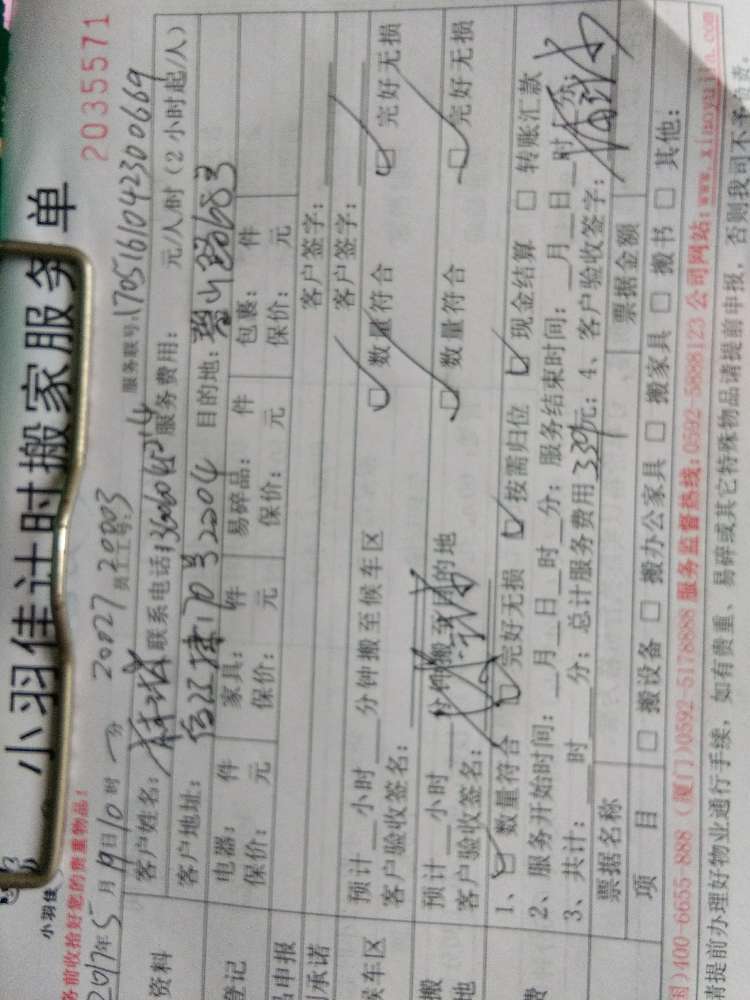 小羽佳计时搬家服务单
小羽佳
2035571
务前收拾好您的贵重物品：
服务联号：1705161042300669
2017年5月19日10时 分 20027 20003
员工工号：
资料
客户姓名： 联系电话 服务费用： 元/人/时（2小时起/人）
客户地址： 170号2204 目的地：
登记
电器： 件 家具： 件 易碎品： 件 包裹： 件
保价： 元 保价： 元 保价： 元 保价： 元
品申报 客户签字：
承诺 客户签字：
候车区
预计 小时 分钟搬至候车区 □ 数量符合 □ 完好无损
客户验收签名：
搬
地
预计 小时 分钟搬至目的地 □ 数量符合 □ 完好无损
客户验收签名：
费
1、□ 数量符合 □ 完好无损 □ 按需归位 □ 现金结算 □ 转账汇款
2、服务开始时间： 月 日 时 分；服务结束时间： 月 日 时 分；
3、共计： 时 分；总计服务费用 339 元；4、客户验收签字：
票据名称 票据金额
项 目 □ 搬设备 □ 搬办公家具 □ 搬家具 □ 搬书 □ 其他：
国)400-6655-888（厦门)0592-5178888 服务监督热线：0592-5888123 公司网站：www.xiaoyujia.com
请提前办理好物业通行手续，如有贵重、易碎或其它特殊物品请提前申报，否则我司不予负责。